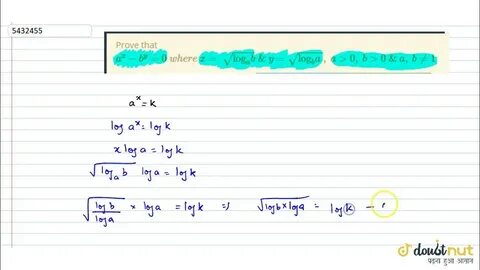 5432455
Prove that
a^x − b^y = 0 where x = √(log_a b) & y = √(log_b a), a > 0, b > 0 & a, b ≠ 1
a^x = k
log a^x = log k
x log a = log k
√(log_a b) log a = log k
√(log b / log a) × log a = log k ⇒ √(log b × log a) = log k —
doubtnut
पढ़ना हुआ आसान